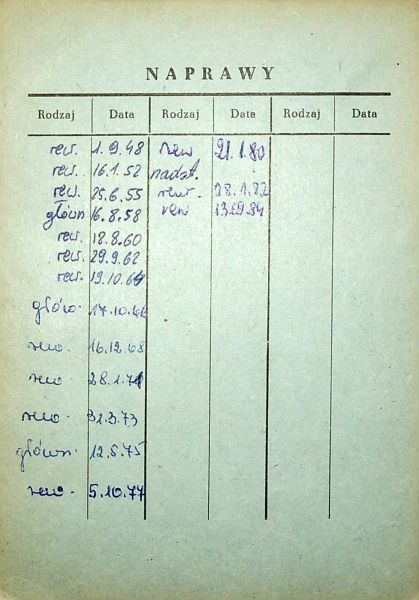 NAPRAWY
Rodzaj Data Rodzaj Data Rodzaj Data
rew. 1.9.48 rew 21.1.80
rew. 16.1.52 nadzt.
rew. 25.6.55 rewr. 28.1.82
główn 16.8.58 rew 13.09.84
rew. 18.8.60
rew. 29.9.62
rew. 19.10.64
głów. 17.10.66
rew. 16.12.68
rew. 28.1.71
rew. 31.3.73
główn. 12.5.75
rew. 5.10.77